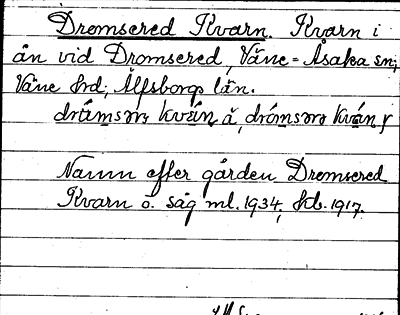 Dromsered Kvarn. Kvarn i
ån vid Dromsered, Väne-Åsaka sn;
Väne hd; Älfsborgs län.
Namn efter gården Dromsered
Kvarn o. såg ml. 1934, hd. 1917.